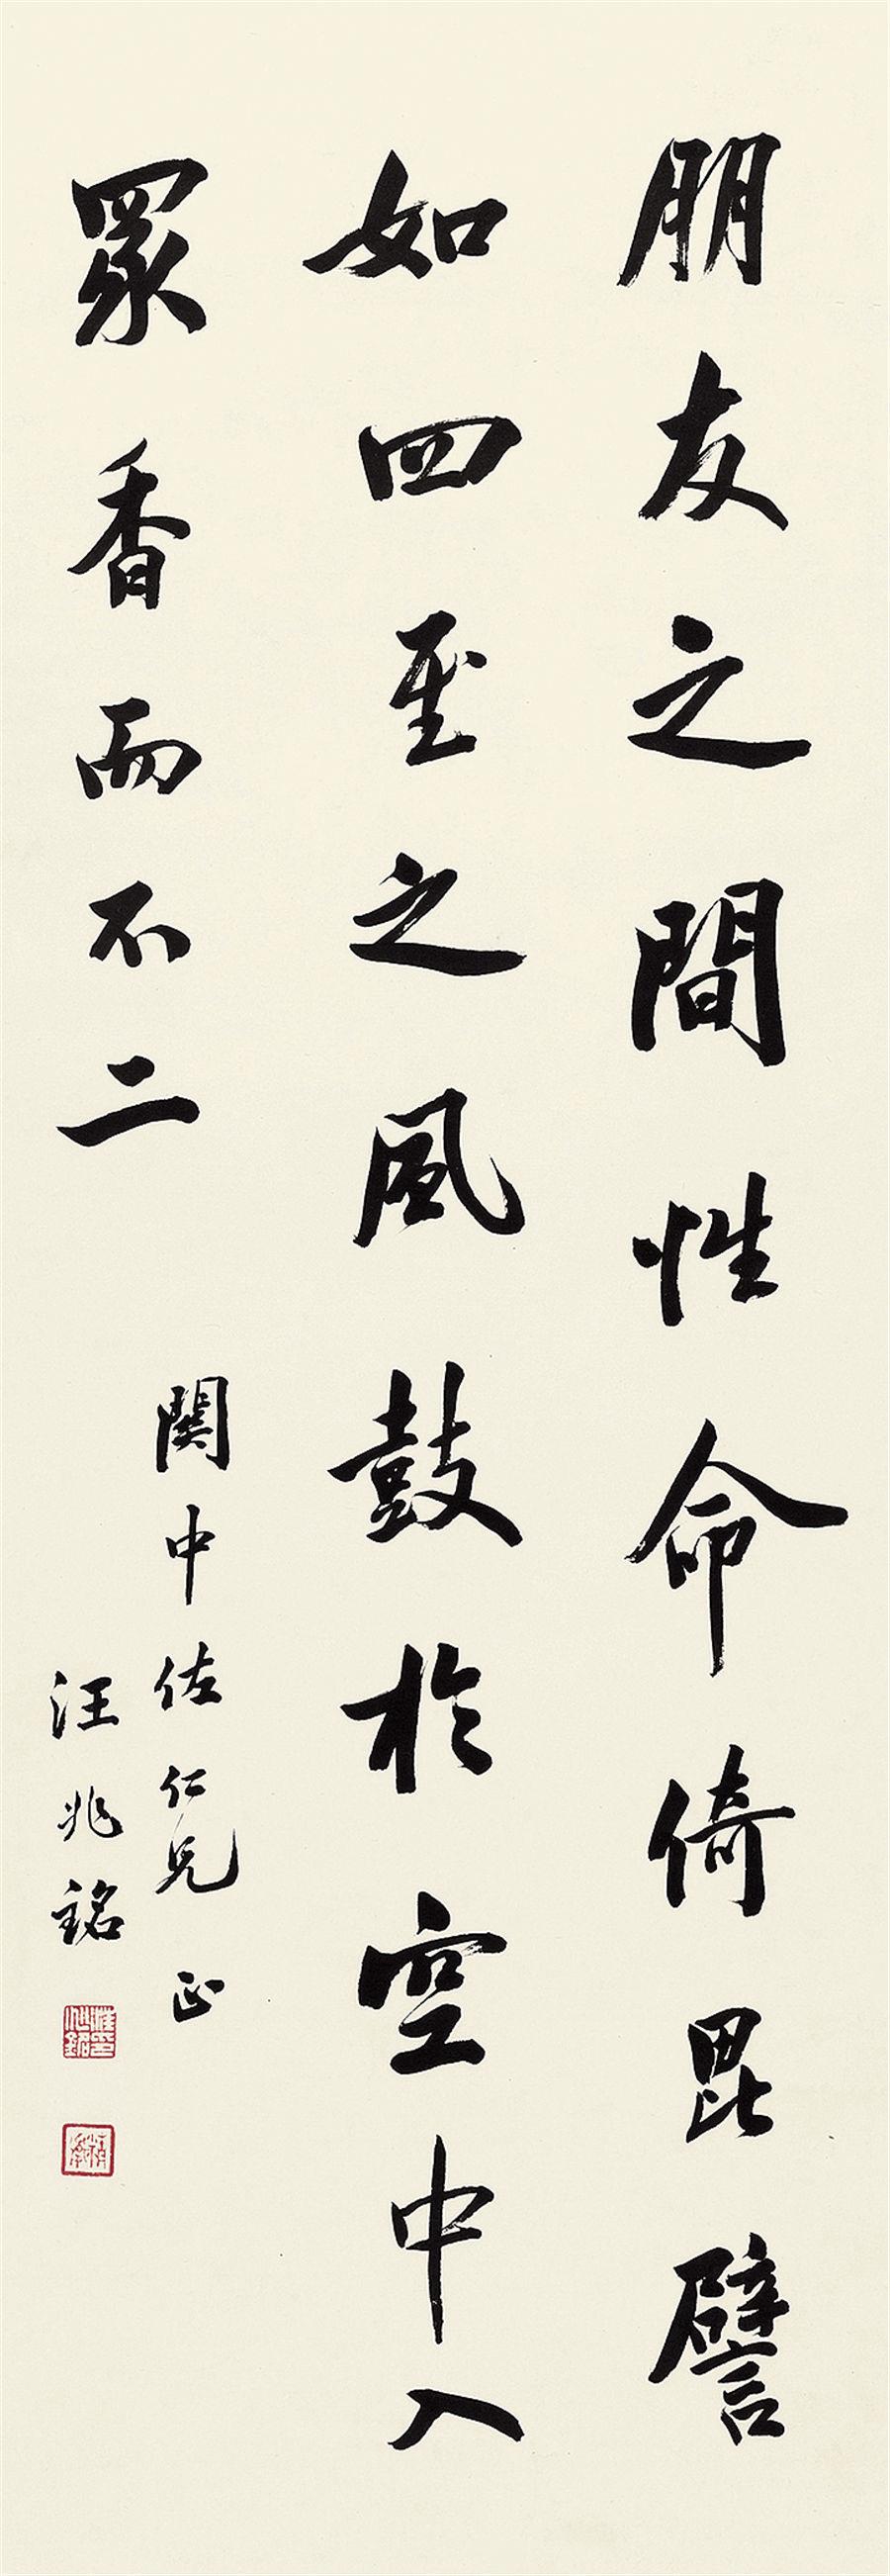 朋友之間性命倚毘譬
如四至之風鼓於空中入
眾香而不二
関中佐仁兄正
汪兆銘